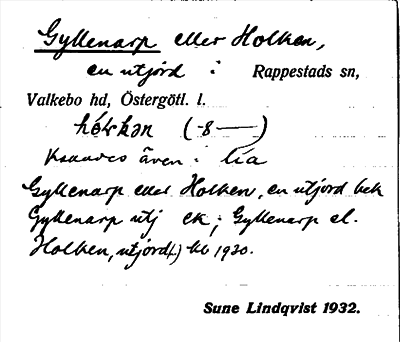 Gyllenarp eller Holken,
en utjord i Rappestads sn,
Valkebo hd, Östergötl. l.
(-8 —)
även i lia
Gyllenarp eller Holken, en utjord bek
Gyllenarp utj ek; Gyllenarp el.
Holken, utjord(.) kb 1920.
Sune Lindqvist 1932.